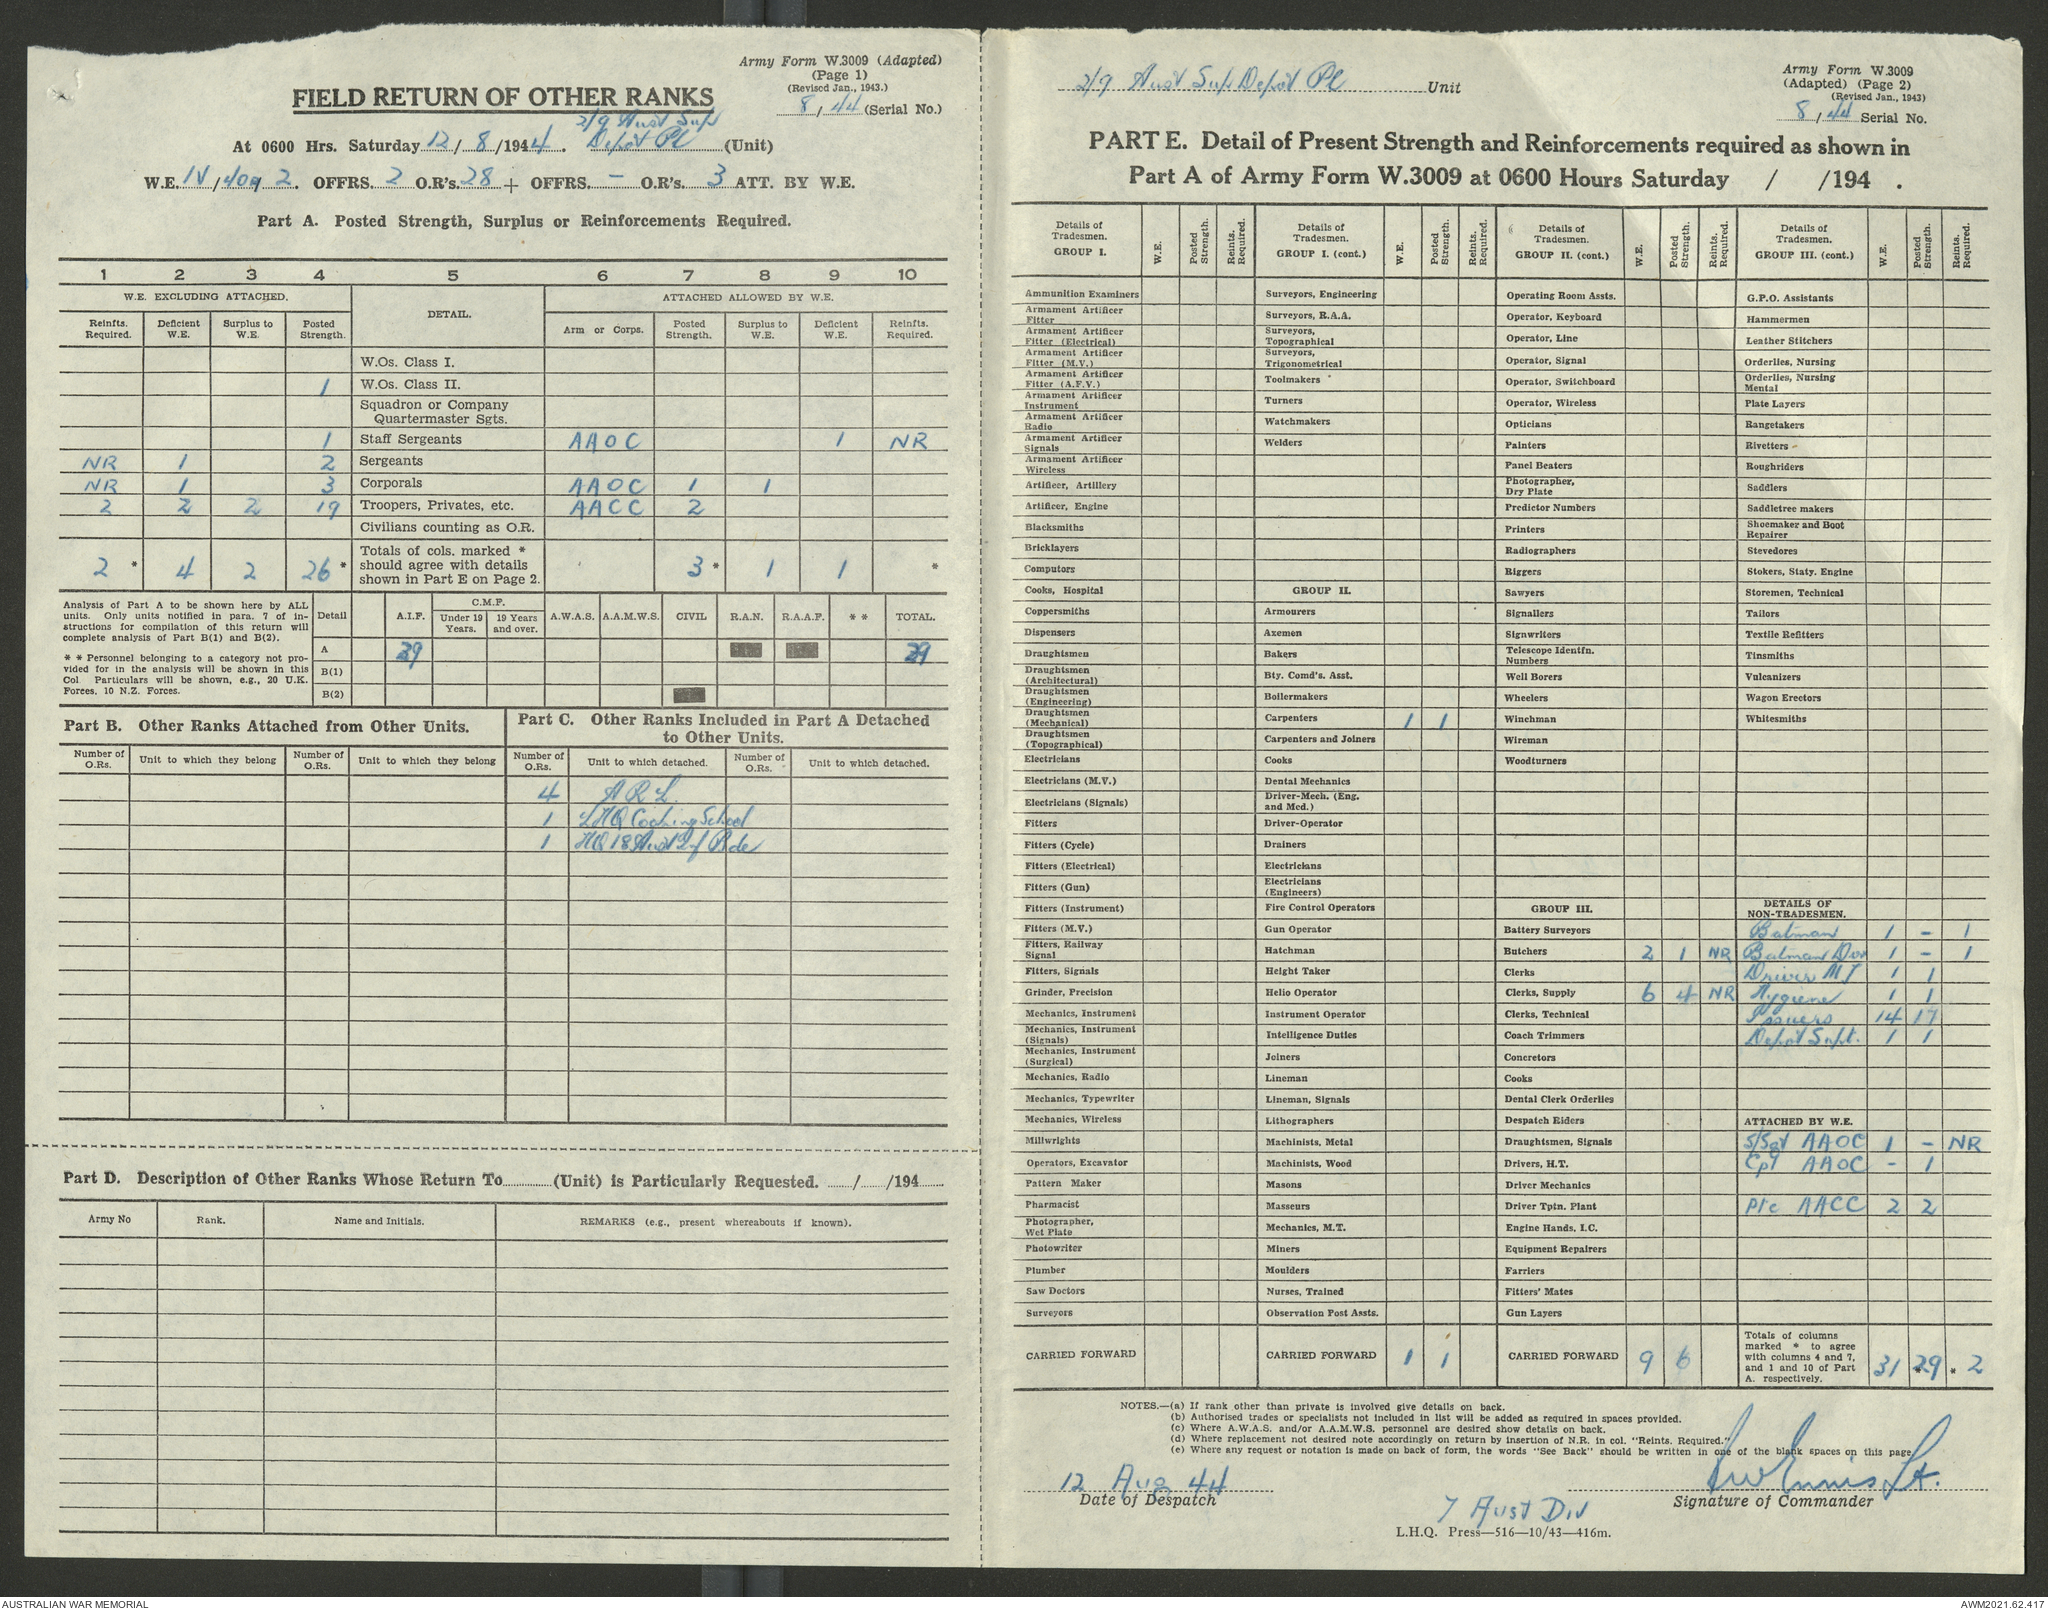 Army Form W.3009 (Adapted)
(Page 1)
(Revised Jan., 1943.)
8/44 (Serial No.)
FIELD RETURN OF OTHER RANKS
At 0600 Hrs. Saturday 12/8/1944. 2/9 Aust Sup Depot Pl (Unit)
W.E. IV/409 2. OFFRS. 2 O.R's. 28 + OFFRS. - O.R's. 3 ATT. BY W.E.
Part A. Posted Strength, Surplus or Reinforcements Required.
1 2 3 4 5 6 7 8 9 10
W.E. EXCLUDING ATTACHED. DETAIL. ATTACHED ALLOWED BY W.E.
Reinfts. Required. Deficient W.E. Surplus to W.E. Posted Strength. Arm or Corps. Posted Strength. Surplus to W.E. Deficient W.E. Reinfts. Required.
W.Os. Class I.
1 W.Os. Class II.
Squadron or Company Quartermaster Sgts.
1 Staff Sergeants AAOC 1 NR
NR 1 2 Sergeants
NR 1 3 Corporals AAOC 1 1
2 2 2 19 Troopers, Privates, etc. AACC 2
Civilians counting as O.R.
2 * 4 2 26 * Totals of cols. marked * should agree with details shown in Part E on Page 2. 3 * 1 1 *
Analysis of Part A to be shown here by ALL units. Only units notified in para. 7 of instructions for compilation of this return will complete analysis of Part B(1) and B(2).
* * Personnel belonging to a category not provided for in the analysis will be shown in this Col. Particulars will be shown, e.g., 20 U.K. Forces, 10 N.Z. Forces.
Detail A.I.F. C.M.F. Under 19 Years. 19 Years and over. A.W.A.S. A.A.M.W.S. CIVIL R.A.N. R.A.A.F. * * TOTAL.
A 29 29
B(1)
B(2)
Part B. Other Ranks Attached from Other Units.
Number of O.Rs. Unit to which they belong Number of O.Rs. Unit to which they belong
Part C. Other Ranks Included in Part A Detached to Other Units.
Number of O.Rs. Unit to which detached. Number of O.Rs. Unit to which detached.
4 A R L
1 LHQ Cooking School
1 HQ 18 Aust Inf Bde
Part D. Description of Other Ranks Whose Return To (Unit) is Particularly Requested. / /194
Army No Rank. Name and Initials. REMARKS (e.g., present whereabouts if known).
2/9 Aust Sup Depot Pl Unit
Army Form W.3009
(Adapted) (Page 2)
(Revised Jan., 1943)
8/44 Serial No.
PART E. Detail of Present Strength and Reinforcements required as shown in
Part A of Army Form W.3009 at 0600 Hours Saturday / /194 .
Details of Tradesmen. GROUP I. W.E. Posted Strength. Reints. Required.
Ammunition Examiners
Armament Artificer Fitter
Armament Artificer Fitter (Electrical)
Armament Artificer Fitter (M.V.)
Armament Artificer Fitter (A.F.V.)
Armament Artificer Instrument
Armament Artificer Radio
Armament Artificer Signals
Armament Artificer Wireless
Artificer, Artillery
Artificer, Engine
Blacksmiths
Bricklayers
Computors
Cooks, Hospital
Coppersmiths
Dispensers
Draughtsmen
Draughtsmen (Architectural)
Draughtsmen (Engineering)
Draughtsmen (Mechanical)
Draughtsmen (Topographical)
Electricians
Electricians (M.V.)
Electricians (Signals)
Fitters
Fitters (Cycle)
Fitters (Electrical)
Fitters (Gun)
Fitters (Instrument)
Fitters (M.V.)
Fitters, Railway Signal
Fitters, Signals
Grinder, Precision
Mechanics, Instrument
Mechanics, Instrument (Signals)
Mechanics, Instrument (Surgical)
Mechanics, Radio
Mechanics, Typewriter
Mechanics, Wireless
Millwrights
Operators, Excavator
Pattern Maker
Pharmacist
Photographer, Wet Plate
Photowriter
Plumber
Saw Doctors
Surveyors
CARRIED FORWARD
Details of Tradesmen. GROUP I. (cont.) W.E. Posted Strength. Reints. Required.
Surveyors, Engineering
Surveyors, R.A.A.
Surveyors, Topographical
Surveyors, Trigonometrical
Toolmakers
Turners
Watchmakers
Welders
GROUP II.
Armourers
Axemen
Bakers
Bty. Comd's. Asst.
Boilermakers
Carpenters 1 1
Carpenters and Joiners
Cooks
Dental Mechanics
Driver-Mech. (Eng. and Mcd.)
Driver-Operator
Drainers
Electricians
Electricians (Engineers)
Fire Control Operators
Gun Operator
Hatchman
Height Taker
Helio Operator
Instrument Operator
Intelligence Duties
Joiners
Lineman
Lineman, Signals
Lithographers
Machinists, Metal
Machinists, Wood
Masons
Masseurs
Mechanics, M.T.
Miners
Moulders
Nurses, Trained
Observation Post Assts.
CARRIED FORWARD 1 1
Details of Tradesmen. GROUP II. (cont.) W.E. Posted Strength. Reints. Required.
Operating Room Assts.
Operator, Keyboard
Operator, Line
Operator, Signal
Operator, Switchboard
Operator, Wireless
Opticians
Painters
Panel Beaters
Photographer, Dry Plate
Predictor Numbers
Printers
Radiographers
Riggers
Sawyers
Signallers
Signwriters
Telescope Identfn. Numbers
Well Borers
Wheelers
Winchman
Wireman
Woodturners
GROUP III.
Battery Surveyors
Butchers 2 1 NR
Clerks
Clerks, Supply 6 4 NR
Clerks, Technical
Coach Trimmers
Concretors
Cooks
Dental Clerk Orderlies
Despatch Riders
Draughtsmen, Signals
Drivers, H.T.
Driver Mechanics
Driver Tptn. Plant
Engine Hands, I.C.
Equipment Repairers
Farriers
Fitters' Mates
Gun Layers
CARRIED FORWARD 9 6
Details of Tradesmen. GROUP III. (cont.) W.E. Posted Strength. Reints. Required.
G.P.O. Assistants
Hammermen
Leather Stitchers
Orderlies, Nursing
Orderlies, Nursing Mental
Plate Layers
Rangetakers
Rivetters
Roughriders
Saddlers
Saddletree makers
Shoemaker and Boot Repairer
Stevedores
Stokers, Staty. Engine
Storemen, Technical
Tailors
Textile Refitters
Tinsmiths
Vulcanizers
Wagon Erectors
Whitesmiths
DETAILS OF NON-TRADESMEN.
Batman 1 - 1
Batman Dvr 1 - 1
Driver MT 1 1
Hygiene 1 1
Issuers 14 17
Depot Supt. 1 1
ATTACHED BY W.E.
S/Sgt AAOC 1 - NR
Cpl AAOC - 1
Pte AACC 2 2
Totals of columns marked * to agree with columns 4 and 7, and 1 and 10 of Part A. respectively. 31 * 29 * 2
NOTES.—(a) If rank other than private is involved give details on back.
(b) Authorised trades or specialists not included in list will be added as required in spaces provided.
(c) Where A.W.A.S. and/or A.A.M.W.S. personnel are desired show details on back.
(d) Where replacement not desired note accordingly on return by insertion of N.R. in col. "Reints. Required."
(e) Where any request or notation is made on back of form, the words "See Back" should be written in one of the blank spaces on this page
12 Aug 44
Date of Despatch
Ennis Lt.
Signature of Commander
7 Aust Div
L.H.Q. Press—516—10/43—416m.
AUSTRALIAN WAR MEMORIAL
AWM2021.62.417